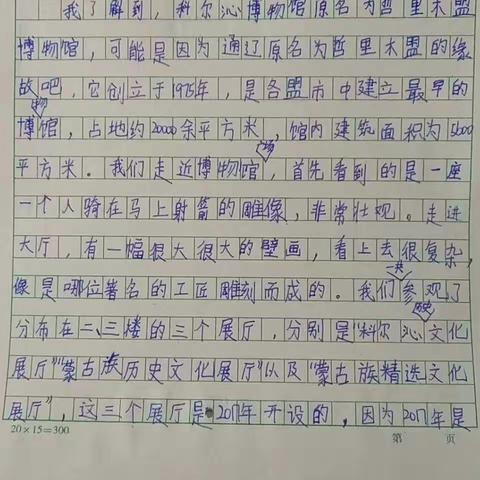 我了解到，科尔沁博物馆原名为哲里木盟
博物馆，可能是因为通辽原名为哲里木盟的缘
故吧，它创立于1975年，是各盟市中建立最早的
博物馆，占地约20000余平方米，馆内建筑面积为5600
平方米。我们走近博物馆广场，首先看到的是一座
一个人骑在马上射箭的雕像，非常壮观。走进
大厅，有一幅很大很大的壁画，看上去很复杂，
像是哪位著名的工匠雕刻而成的。我们一共参观了
分布在二、三楼的三个展厅，分别是“科尔沁历史文化
展厅”“蒙古族历史文化展厅”以及“蒙古族精选文化
展厅”，这三个展厅是2017年开设的，因为2017年是
20×15=300
第 页